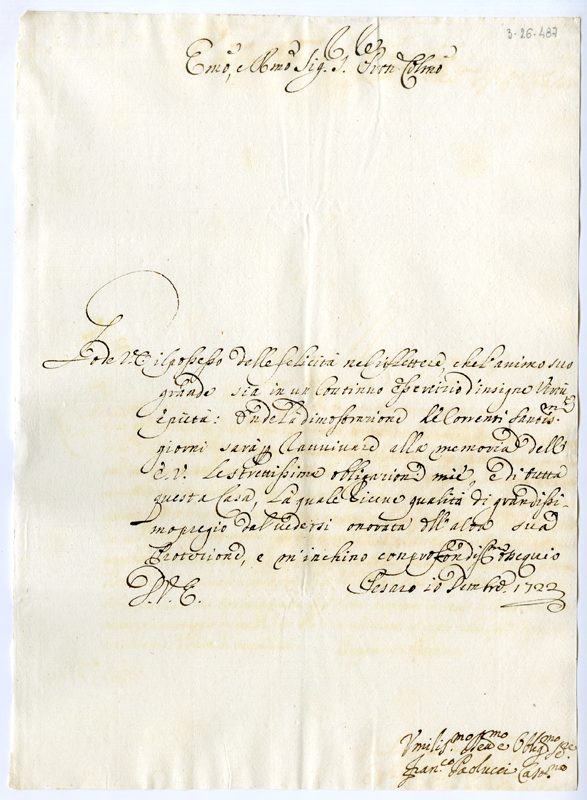 3-26-487
Emo, e Rmo Sig. S. Pron Colmo
Gode V.E. il possesso delle felicità nel riflettere, che l'animo suo
grande sia in un continuo esservizio d'insigne Virtù
e pietà: onde la dimostrazione de correnti Santissmi
giorni sarà ravvivare alla memoria dell'
E.V. le strettissime obligazioni mie, e di tutta
questa Casa, la quale riceve qualità di grandissi-
mo pregio dal vedersi onorata dell'alta sua
Protezione, e m'inchino con profondissmo ossequio
D.V.E. Pesaro 10 Dembre 1722
Umilissmo Obligmo
Franco Paolucci